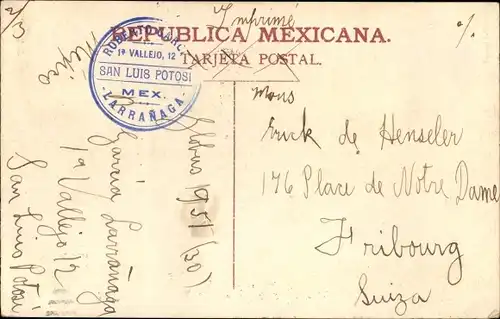 2/3
Imprimé
%
REPUBLICA MEXICANA.
TARJETA POSTAL.
Mexico
ROBERTO GARCIA
1ª VALLEJO, 12
SAN LUIS POTOSI
MEX.
LARRAÑAGA
Globus 1951 (30)
García Larrañaga
1ª Vallejo 12
San Luis Potosí
Mons
Erick de Henseler
176 Place de Notre Dame
Fribourg
Suiza